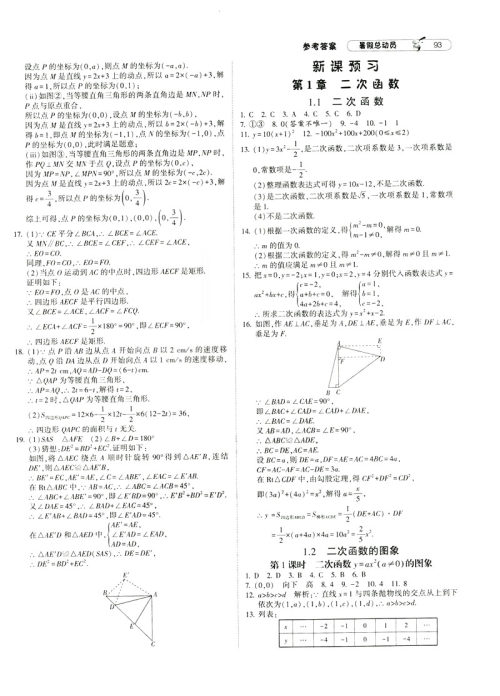 参考答案 暑假总动员 93
设点 P 的坐标为(0,a),则点 M 的坐标为(-a,a).
因为点 M 是直线 y=2x+3 上的动点,所以 a=2×(-a)+3,解
得 a=1,所以点 P 的坐标为(0,1);
(ⅱ)如图②,当等腰直角三角形的两条直角边是 MN、NP 时,
P 点与原点重合,
所以点 P 的坐标为(0,0),设点 M 的坐标为(-b,b),
因为点 M 是直线 y=2x+3 上的动点,所以 b=2×(-b)+3,解
得 b=1,即点 M 的坐标为(-1,1),点 N 的坐标为(-1,0),点
P 的坐标为(0,0),此时满足题意;
(ⅲ)如图③,当等腰直角三角形的两条直角边是 MP、NP 时,
作 PQ⊥MN 交 MN 于点 Q,设点 P 的坐标为(0,c),
因为 MP=NP,∠MPN=90°,所以点 M 的坐标为(-c,2c).
因为点 M 是直线 y=2x+3 上的动点,所以 2c=2×(-c)+3,解
得 c=3/4,所以点 P 的坐标为(0,3/4).
综上可得,点 P 的坐标为(0,1),(0,0),(0,3/4).
17. (1)∵CE 平分∠BCA,∴∠BCE=∠ACE.
又 MN∥BC,∴∠BCE=∠CEF,∴∠CEF=∠ACE,
∴EO=CO.
同理,FO=CO,∴EO=FO.
(2)当点 O 运动到 AC 的中点时,四边形 AECF 是矩形.
证明如下:
∵EO=FO,点 O 是 AC 的中点,
∴四边形 AECF 是平行四边形.
又∠BCE=∠ACE,∠ACF=∠FCQ.
∴∠ECA+∠ACF=1/2×180°=90°,即∠ECF=90°,
∴四边形 AECF 是矩形.
18. (1)∵点 P 沿 AB 边从点 A 开始向点 B 以 2 cm/s 的速度移
动,点 Q 沿 DA 边从点 D 开始向点 A 以 1 cm/s 的速度移动,
∴AP=2t cm,AQ=AD-DQ=(6-t)cm.
∵△QAP 为等腰直角三角形,
∴AP=AQ,∴2t=6-t,解得 t=2,
∴t=2 时,△QAP 为等腰直角三角形.
(2)S四边形QAPC=12×6-1/2×12t-1/2×6(12-2t)=36,
∴四边形 QAPC 的面积与 t 无关.
19. (1)SAS △AFE (2)∠B+∠D=180°
(3)猜想:DE²=BD²+EC².证明如下:
如图,将△AEC 绕点 A 顺时针旋转 90°得到△AE′B,连结
DE′,则△AEC≌△AE′B,
∴BE′=EC,AE′=AE,∠C=∠ABE′,∠EAC=∠E′AB.
在 Rt△ABC 中,∵AB=AC,∴∠ABC=∠ACB=45°,
∴∠ABC+∠ABE′=90°,即∠E′BD=90°,∴E′B²+BD²=E′D².
又∠DAE=45°,∴∠BAD+∠EAC=45°,
∴∠E′AB+∠BAD=45°,即∠E′AD=45°.
在△AE′D 和△AED 中,{AE′=AE, ∠E′AD=∠EAD, AD=AD,
∴△AE′D≌△AED(SAS),∴DE=DE′,
∴DE²=BD²+EC².
E′
B
A
D
E
C
新课预习
第1章 二次函数
1.1 二次函数
1. C 2. C 3. A 4. C 5. C 6. D
7. ①③ 8. 0(答案不唯一) 9. -4 10. -1 1
11. y=10(x+1)² 12. -100x²+100x+200(0≤x≤2)
13. (1)y=3x²-1/2,是二次函数,二次项系数是 3,一次项系数是
0,常数项是-1/2.
(2)整理函数表达式可得 y=10x-12,不是二次函数.
(3)是二次函数,二次项系数是√5,一次项系数是 1,常数项
是 1.
(4)不是二次函数.
14. (1)根据一次函数的定义,得{m²-m=0, m-1≠0, 解得 m=0.
∴m 的值为 0.
(2)根据二次函数的定义,得 m²-m≠0,解得 m≠0 且 m≠1.
∴m 的值应满足 m≠0 且 m≠1.
15. 把 x=0,y=-2;x=1,y=0;x=2,y=4 分别代入函数表达式 y=
ax²+bx+c,得{c=-2, a+b+c=0, 4a+2b+c=4, 解得{a=1, b=1, c=-2,
∴所求二次函数的表达式为 y=x²+x-2.
16. 如图,作 AE⊥AC,垂足为 A,DE⊥AE,垂足为 E,作 DF⊥AC,
垂足为 F.
A
E
F
D
B C
∵∠BAD=∠CAE=90°,
即∠BAC+∠CAD=∠CAD+∠DAE,
∴∠BAC=∠DAE.
又 AB=AD,∠ACB=∠E=90°,
∴△ABC≌△ADE,
∴BC=DE,AC=AE.
设 BC=a,则 DE=a,DF=AE=AC=4BC=4a,
CF=AC-AF=AC-DE=3a.
在 Rt△CDF 中,由勾股定理,得 CF²+DF²=CD²,
即(3a)²+(4a)²=x²,解得 a=x/5,
∴y=S四边形ABCD=S梯形ACDE=1/2(DE+AC)·DF
=1/2×(a+4a)×4a=10a²=2/5x².
1.2 二次函数的图象
第1课时 二次函数 y=ax²(a≠0)的图象
1. D 2. D 3. B 4. C 5. B 6. B
7. (0,0) 向下 高 8. 4 9. -2 10. 4 11. 8
12. a>b>c>d 解析:∵直线 x=1 与四条抛物线的交点从上到下
依次为(1,a),(1,b),(1,c),(1,d),∴a>b>c>d.
13. 列表:
x … -2 -1 0 1 2 …
y … -4 -1 0 -1 -4 …